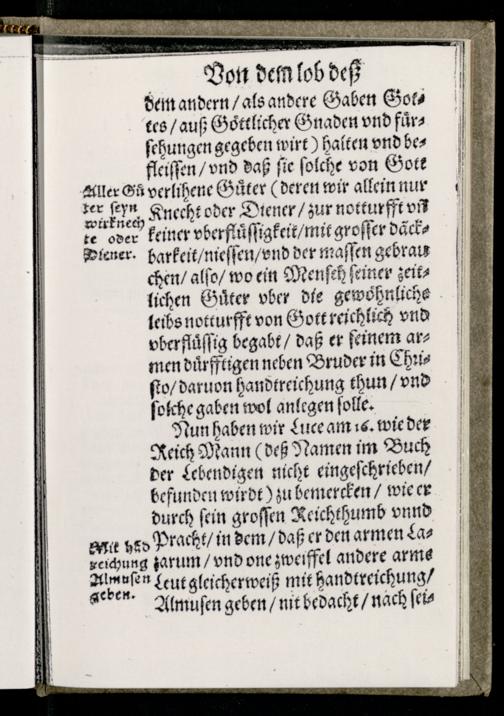 Von dem lob deß
dem andern / als andere Gaben Got-
tes / auß Göttlicher Gnaden vnd für-
sehungen gegeben wirt) halten vnd be-
fleissen / vnd daß sie solche von Gott
verlihene Güter (deren wir allein nur
Knecht oder Diener / zur notturfft vñ
keiner vberflüssigkeit / mit grosser däck-
barkeit / niessen / vnd der massen gebrau
chen / also / wo ein Mensch seiner zeit-
lichen Güter vber die gewöhnliche
leibs notturfft von Gott reichlich vnd
vberflüssig begabt / daß er seinem ar-
men dürfftigen neben Bruder in Chri-
sto / daruon handtreichung thun / vnd
solche gaben wol anlegen solle.
Aller Gü
ter seyn
wir knech
te oder
Diener.
Nun haben wir Luce am 16. wie der
Reich Mann (deß Namen im Buch
der Lebendigen nicht eingeschrieben /
befunden wirdt) zu bemercken / wie er
durch sein grossen Reichthumb vnnd
Pracht / in dem / daß er den armen La-
zarum / vnd one zweiffel andere arme
Leut gleicherweiß mit handtreichung /
Almusen geben / nit bedacht / nach sei-
Mit hãd
reichung
Almusen
geben.